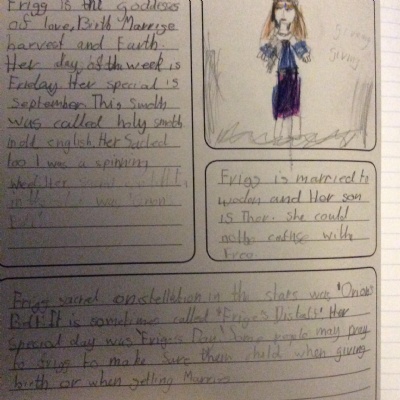 Frigg is the goddess
of love, Birth Marrige
harvest and Earth.
Her day of the week is
Friday. Her special is
September. This month
was called holy month
in old english. Her Sacred
tool was a spinning
weel. Her
in the was 'Orions
Belt'
giving
giving
Frigg is married to
woden and Her son
is Thor. She could
not be confuse with
Freya.
Friggs sacred constellation in the stars was 'Orions
Belt'. It is sometimes called 'Frigg's Distaff'. Her
special day was Friggs Day! Some people may pray
to frigg to make sure them child when giving
birth or when getting Married